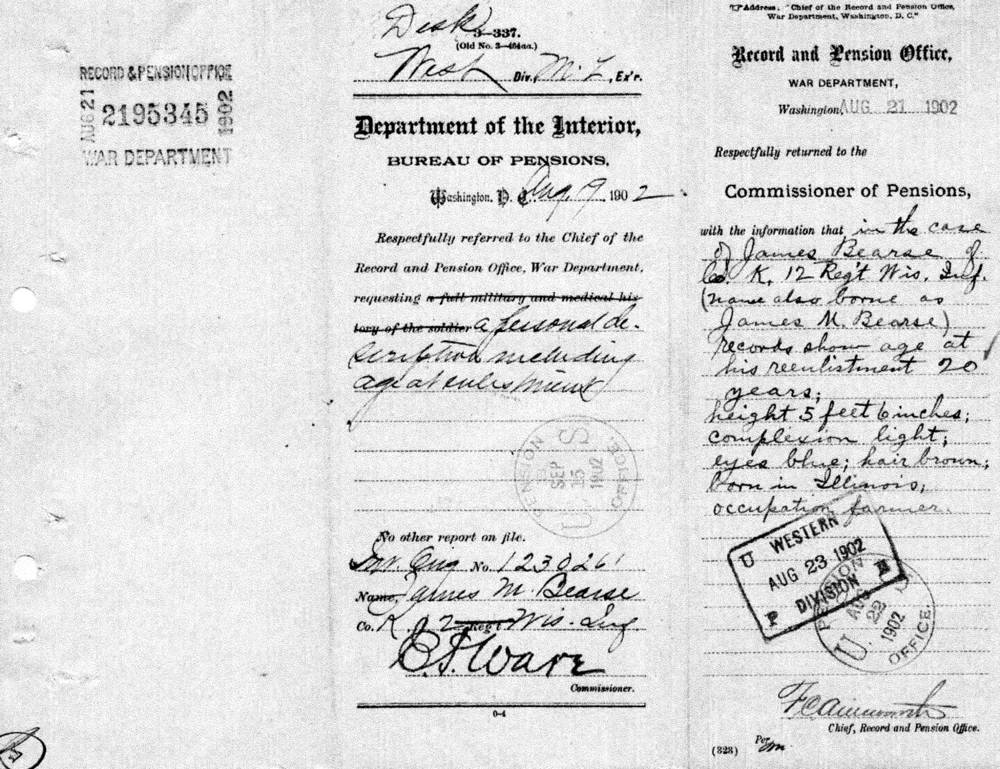 RECORD & PENSION OFFICE
AUG 21
2195345
1902
WAR DEPARTMENT
Desk
3—337.
(Old No. 3—464aa.)
West Div., M. L., Ex'r.
Department of the Interior,
BUREAU OF PENSIONS,
Washington, D. C. Aug. 9, 1902
Respectfully referred to the Chief of the
Record and Pension Office, War Department,
requesting a full military and medical his-
tory of the soldier a personal de-
scription including
age at enlistment
U S
PENSION
SEP
15
1902
OFFICE.
No other report on file.
Inv. Orig No. 1230261
Name, James M Bearse
Co. K, 12 Reg't Wis. Inf
E. F. Ware
Commissioner.
0-4
Address, "Chief of the Record and Pension Office,
War Department, Washington, D. C."
Record and Pension Office,
WAR DEPARTMENT,
Washington, AUG 21 1902
Respectfully returned to the
Commissioner of Pensions,
with the information that in the case
of James Bearse of
Co. K, 12 Reg't Wis. Inf.
(name also borne as
James M. Bearse)
records show age at
his reenlistment 20
years;
height 5 feet 6 inches;
complexion light;
eyes blue; hair brown;
born in Illinois;
occupation farmer.
U WESTERN
AUG 23 1902
P DIVISION
PENSION
AUG
22
1902
U
OFFICE.
F C Ainsworth
Chief, Record and Pension Office.
(323)
Per